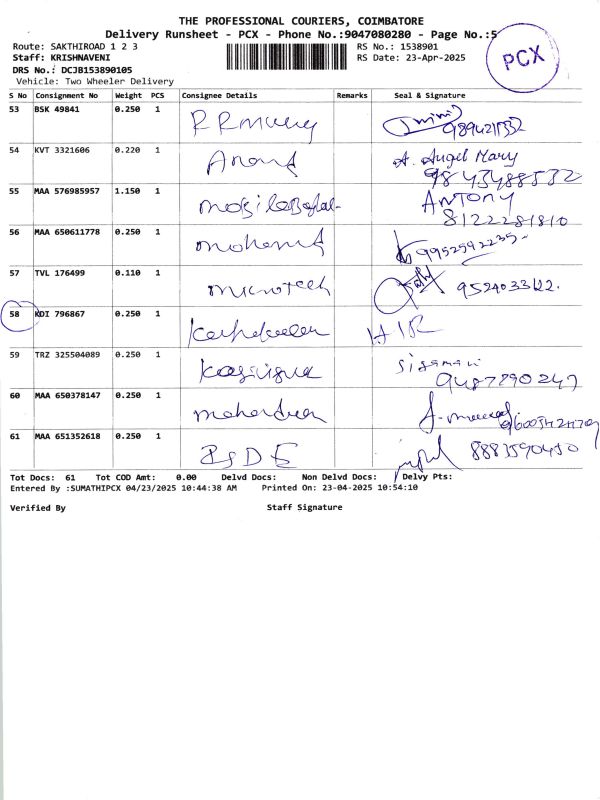 THE PROFESSIONAL COURIERS, COIMBATORE
Delivery Runsheet - PCX - Phone No.:9047080280 - Page No.:5
Route: SAKTHIROAD 1 2 3
RS No.: 1538901
Staff: KRISHNAVENI
RS Date: 23-Apr-2025
PCX
DRS No.: DCJB153890105
Vehicle: Two Wheeler Delivery
S No Consignment No Weight PCS Consignee Details Remarks Seal & Signature
53 BSK 49841 0.250 1
54 KVT 3321606 0.220 1 Anand A. Angel Mary
9843488532
55 MAA 576985957 1.150 1 Antony
8122281810
56 MAA 650611778 0.250 1 9952592235
57 TVL 176499 0.110 1 microtech 9524033122.
58 KDI 796867 0.250 1
59 TRZ 325504089 0.250 1
9487790247
60 MAA 650378147 0.250 1
61 MAA 651352618 0.250 1 8883590450
Tot Docs: 61 Tot COD Amt: 0.00 Delvd Docs: Non Delvd Docs: Delvy Pts:
Entered By :SUMATHIPCX 04/23/2025 10:44:38 AM Printed On: 23-04-2025 10:54:10
Verified By Staff Signature